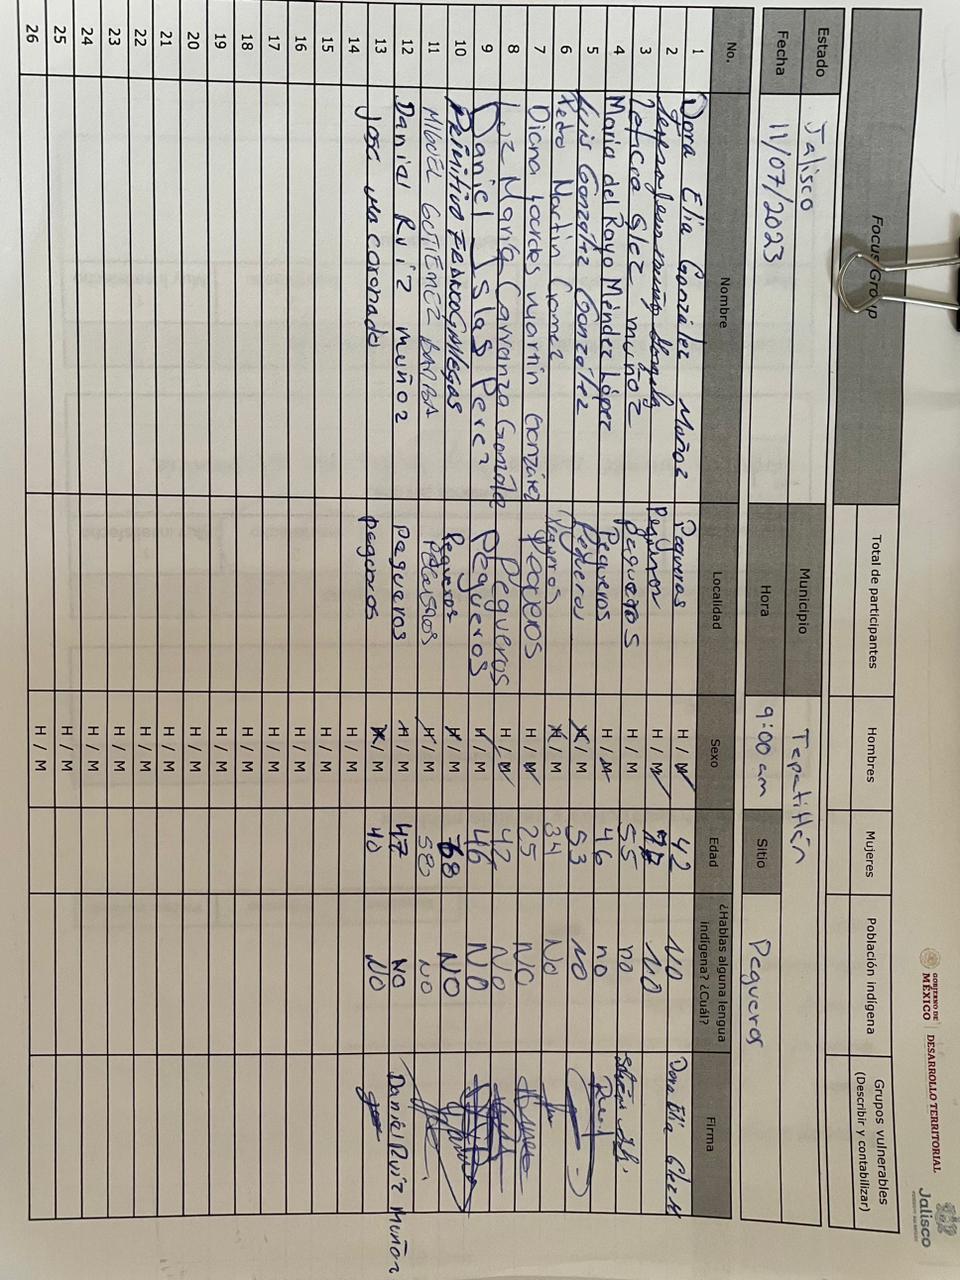 GOBIERNO DE MÉXICO | DESARROLLO TERRITORIAL Jalisco
Focus Group Total de participantes Hombres Mujeres Población indígena Grupos vulnerables (Describir y contabilizar)
Estado Jalisco Municipio Tepatitlán
Fecha 11/07/2023 Hora 9:00 am Sitio Pegueros
No. Nombre Localidad Sexo Edad ¿Hablas alguna lengua indígena? ¿Cuál? Firma
1 Dora Elia González Muñoz Pegueros H / M 42 NO Dora Elia Glez M
2 Pegueros H / M NO
3 Leticia Glez muñoz pegueros H / M 55 no
4 Maria del Rayo Méndez López Pegueros H / M 46 no
5 Luis González González Pegueros H / M 53 NO
6 Pedro Martin Gomez Pegueros H / M 34 No
7 Diana Lourdes Martin González Pegueros H / M 25 NO
8 Luz María Carranza González Pegueros H / M 42 No
9 Daniel Islas Perez Pegueros H / M 46 NO
10 PRIMITIVO FRANCO GALLEGOS Pegueros H / M 68 NO
11 MIGUEL GUTIERREZ BARBA H / M 58 NO
12 Daniel Ruiz muñoz pegueros H / M 47 NO Daniel Ruiz Muñoz
13 Jose Ma coronado pegueros H / M 40 NO
14 H / M
15 H / M
16 H / M
17 H / M
18 H / M
19 H / M
20 H / M
21 H / M
22 H / M
23 H / M
24 H / M
25 H / M
26 H / M